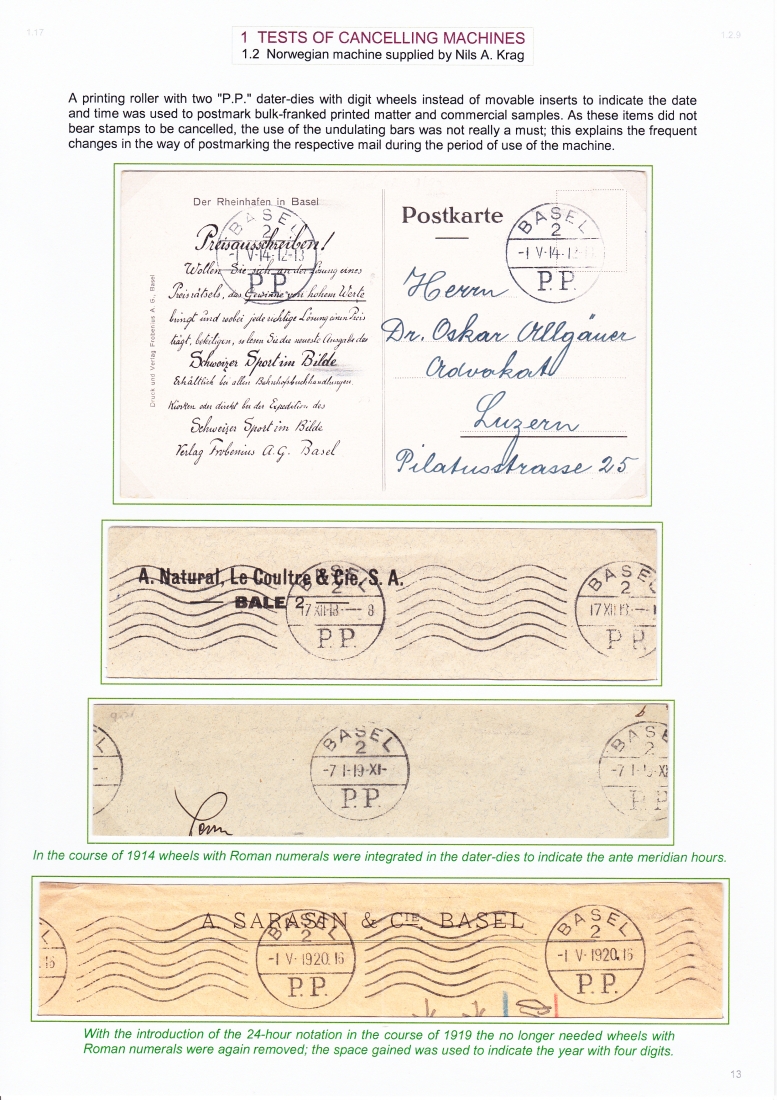 1.17
1.2.9
1 TESTS OF CANCELLING MACHINES
1.2 Norwegian machine supplied by Nils A. Krag
A printing roller with two "P.P." dater-dies with digit wheels instead of movable inserts to indicate the date
and time was used to postmark bulk-franked printed matter and commercial samples. As these items did not
bear stamps to be cancelled, the use of the undulating bars was not really a must; this explains the frequent
changes in the way of postmarking the respective mail during the period of use of the machine.
Der Rheinhafen in Basel
Preisausschreiben!
Wollen Sie sich an der Lösung eines
Preisrätsels, das Gewinne von hohem Werte
bringt und wobei jede richtige Lösung einen Preis
trägt, beteiligen, so lesen Sie die neueste Ausgabe des
Schweizer Sport im Bilde
Erhältlich bei allen Bahnhofbuchhandlungen,
Kiosken oder direkt bei der Expedition des
Schweizer Sport im Bilde
Verlag Frobenius A.G. Basel
Druck und Verlag Frobenius A. G., Basel
BASEL
2
-1 V-14-12-13
P.P.
Postkarte
BASEL
2
-1 V-14-12
P.P.
Herrn
Dr. Oskar Allgäuer
Advokat
Luzern
Pilatusstrasse 25
A. Natural, Le Coultre & Cie, S. A.
BALE 2
BASEL
2
17 XII-13-— 8
P.P.
BASEL
2
17 XII 13.-—
P.P.
BASEL
2
-7 I-19-XI-
P.P.
BASEL
2
-7 I-
P.P.
In the course of 1914 wheels with Roman numerals were integrated in the dater-dies to indicate the ante meridian hours.
A. SARASIN & CIE. BASEL
.16
BASEL
2
-1 V-1920.16
P.P.
BASEL
2
-1 V-1920.16
P.P.
With the introduction of the 24-hour notation in the course of 1919 the no longer needed wheels with
Roman numerals were again removed; the space gained was used to indicate the year with four digits.
13